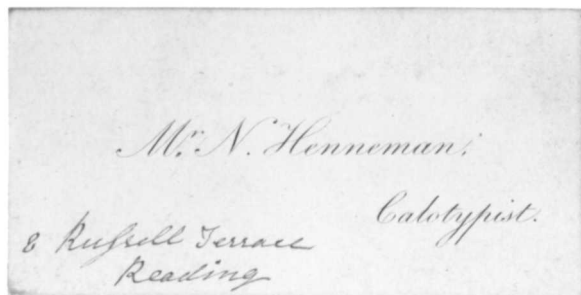 Mr. N. Henneman.
Calotypist.
8 Russell Terrace
Reading